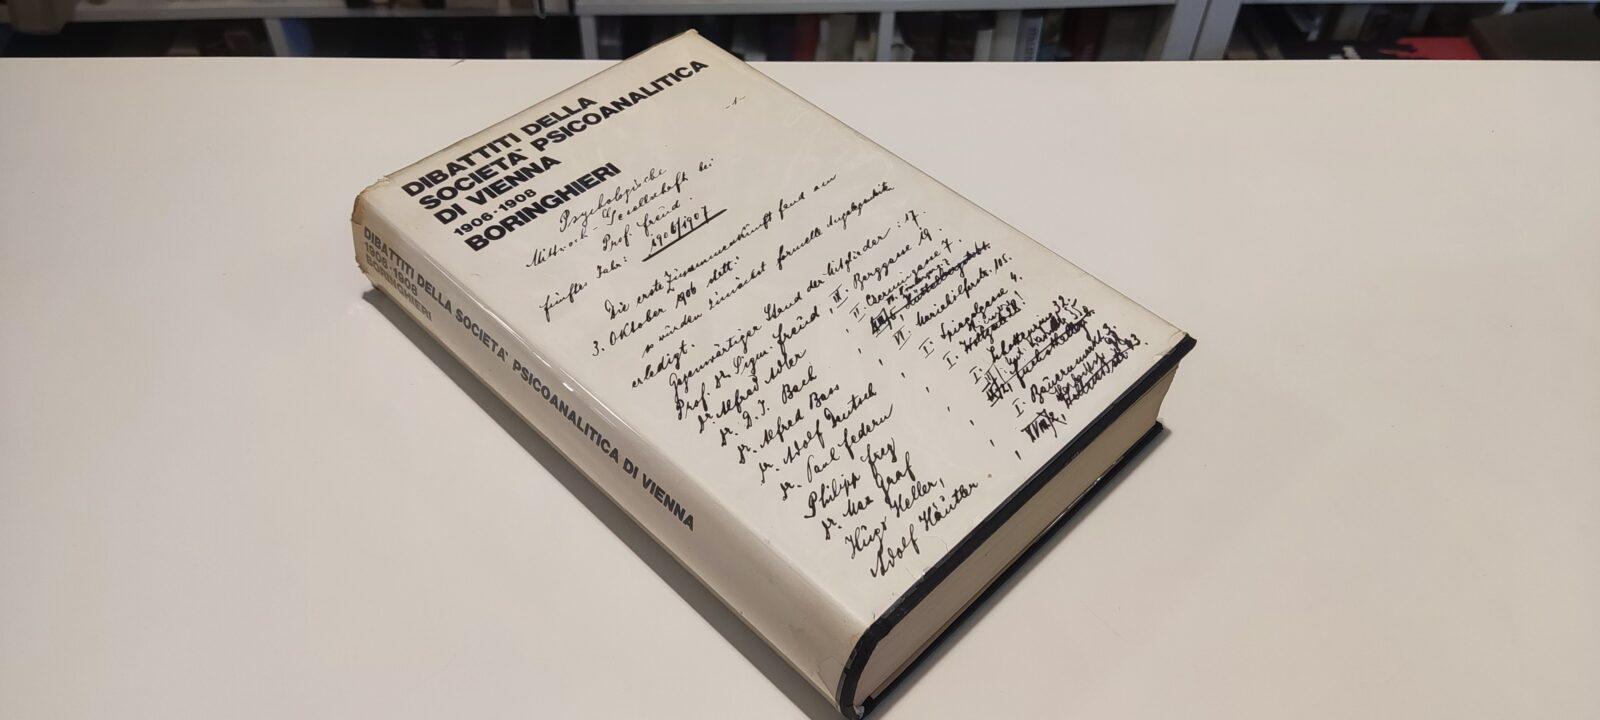 DIBATTITI DELLA
SOCIETA' PSICOANALITICA
DI VIENNA
1906-1908
BORINGHIERI
-1-
Psychologische
Mittwoch-Gesellschaft bei
Prof. Freud.
fünftes Jahr: 1906/1907
Die erste Zusammenkunft fand am
3. Oktober 1906 statt:
es wurden zunächst formelle Angelegenheiten
erledigt.
Gegenwärtiger Stand der Mitglieder: 17.
Prof. Dr. Sigm. Freud, IX. Berggasse 19.
Dr. Alfred Adler, II. Czerningasse 7.
Dr. D. J. Bach
Dr. Alfred Bass, VI. Mariahilferstr. 105.
Dr. Adolf Deutsch, I. Spiegelgasse 4.
Dr. Paul Federn, I.
Philipp Frey
Dr. Max Graf
Hugo Heller, I. Bauernmarkt 3.
Adolf Häutler
DIBATTITI DELLA SOCIETA' PSICOANALITICA DI VIENNA
1906-1908
BORINGHIERI